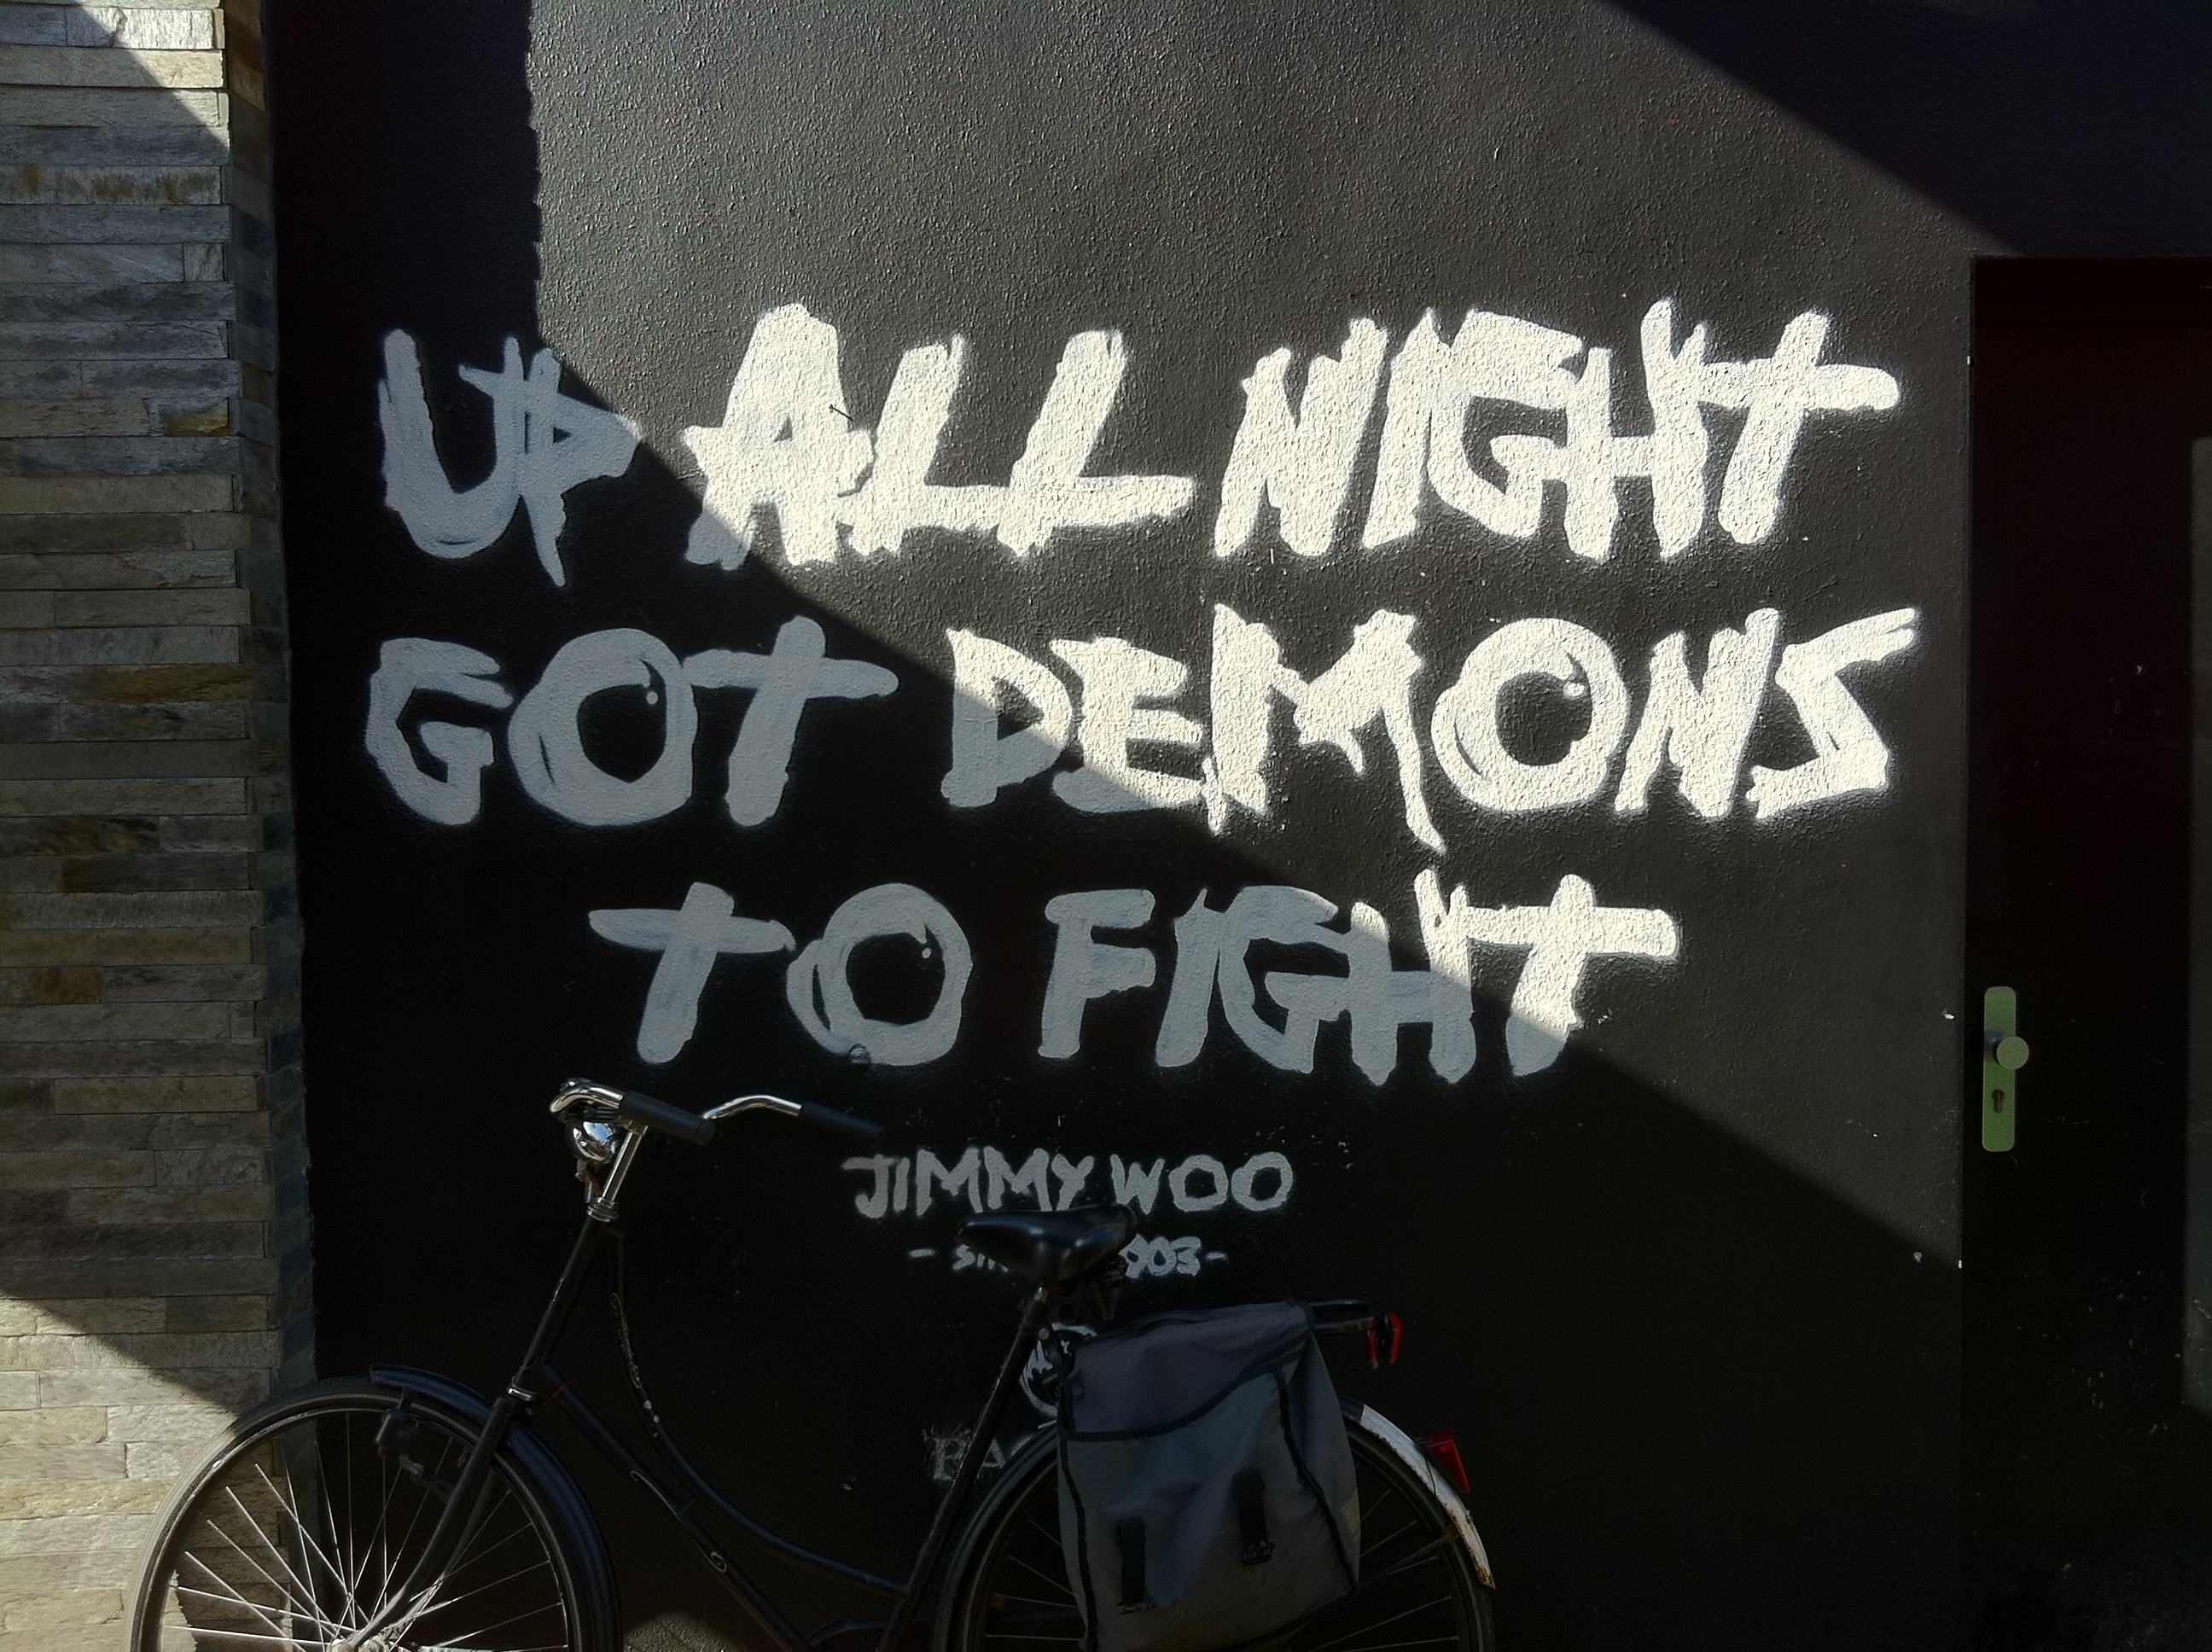 UP ALL NIGHT
GOT DEMONS
TO FIGHT
JIMMY WOO